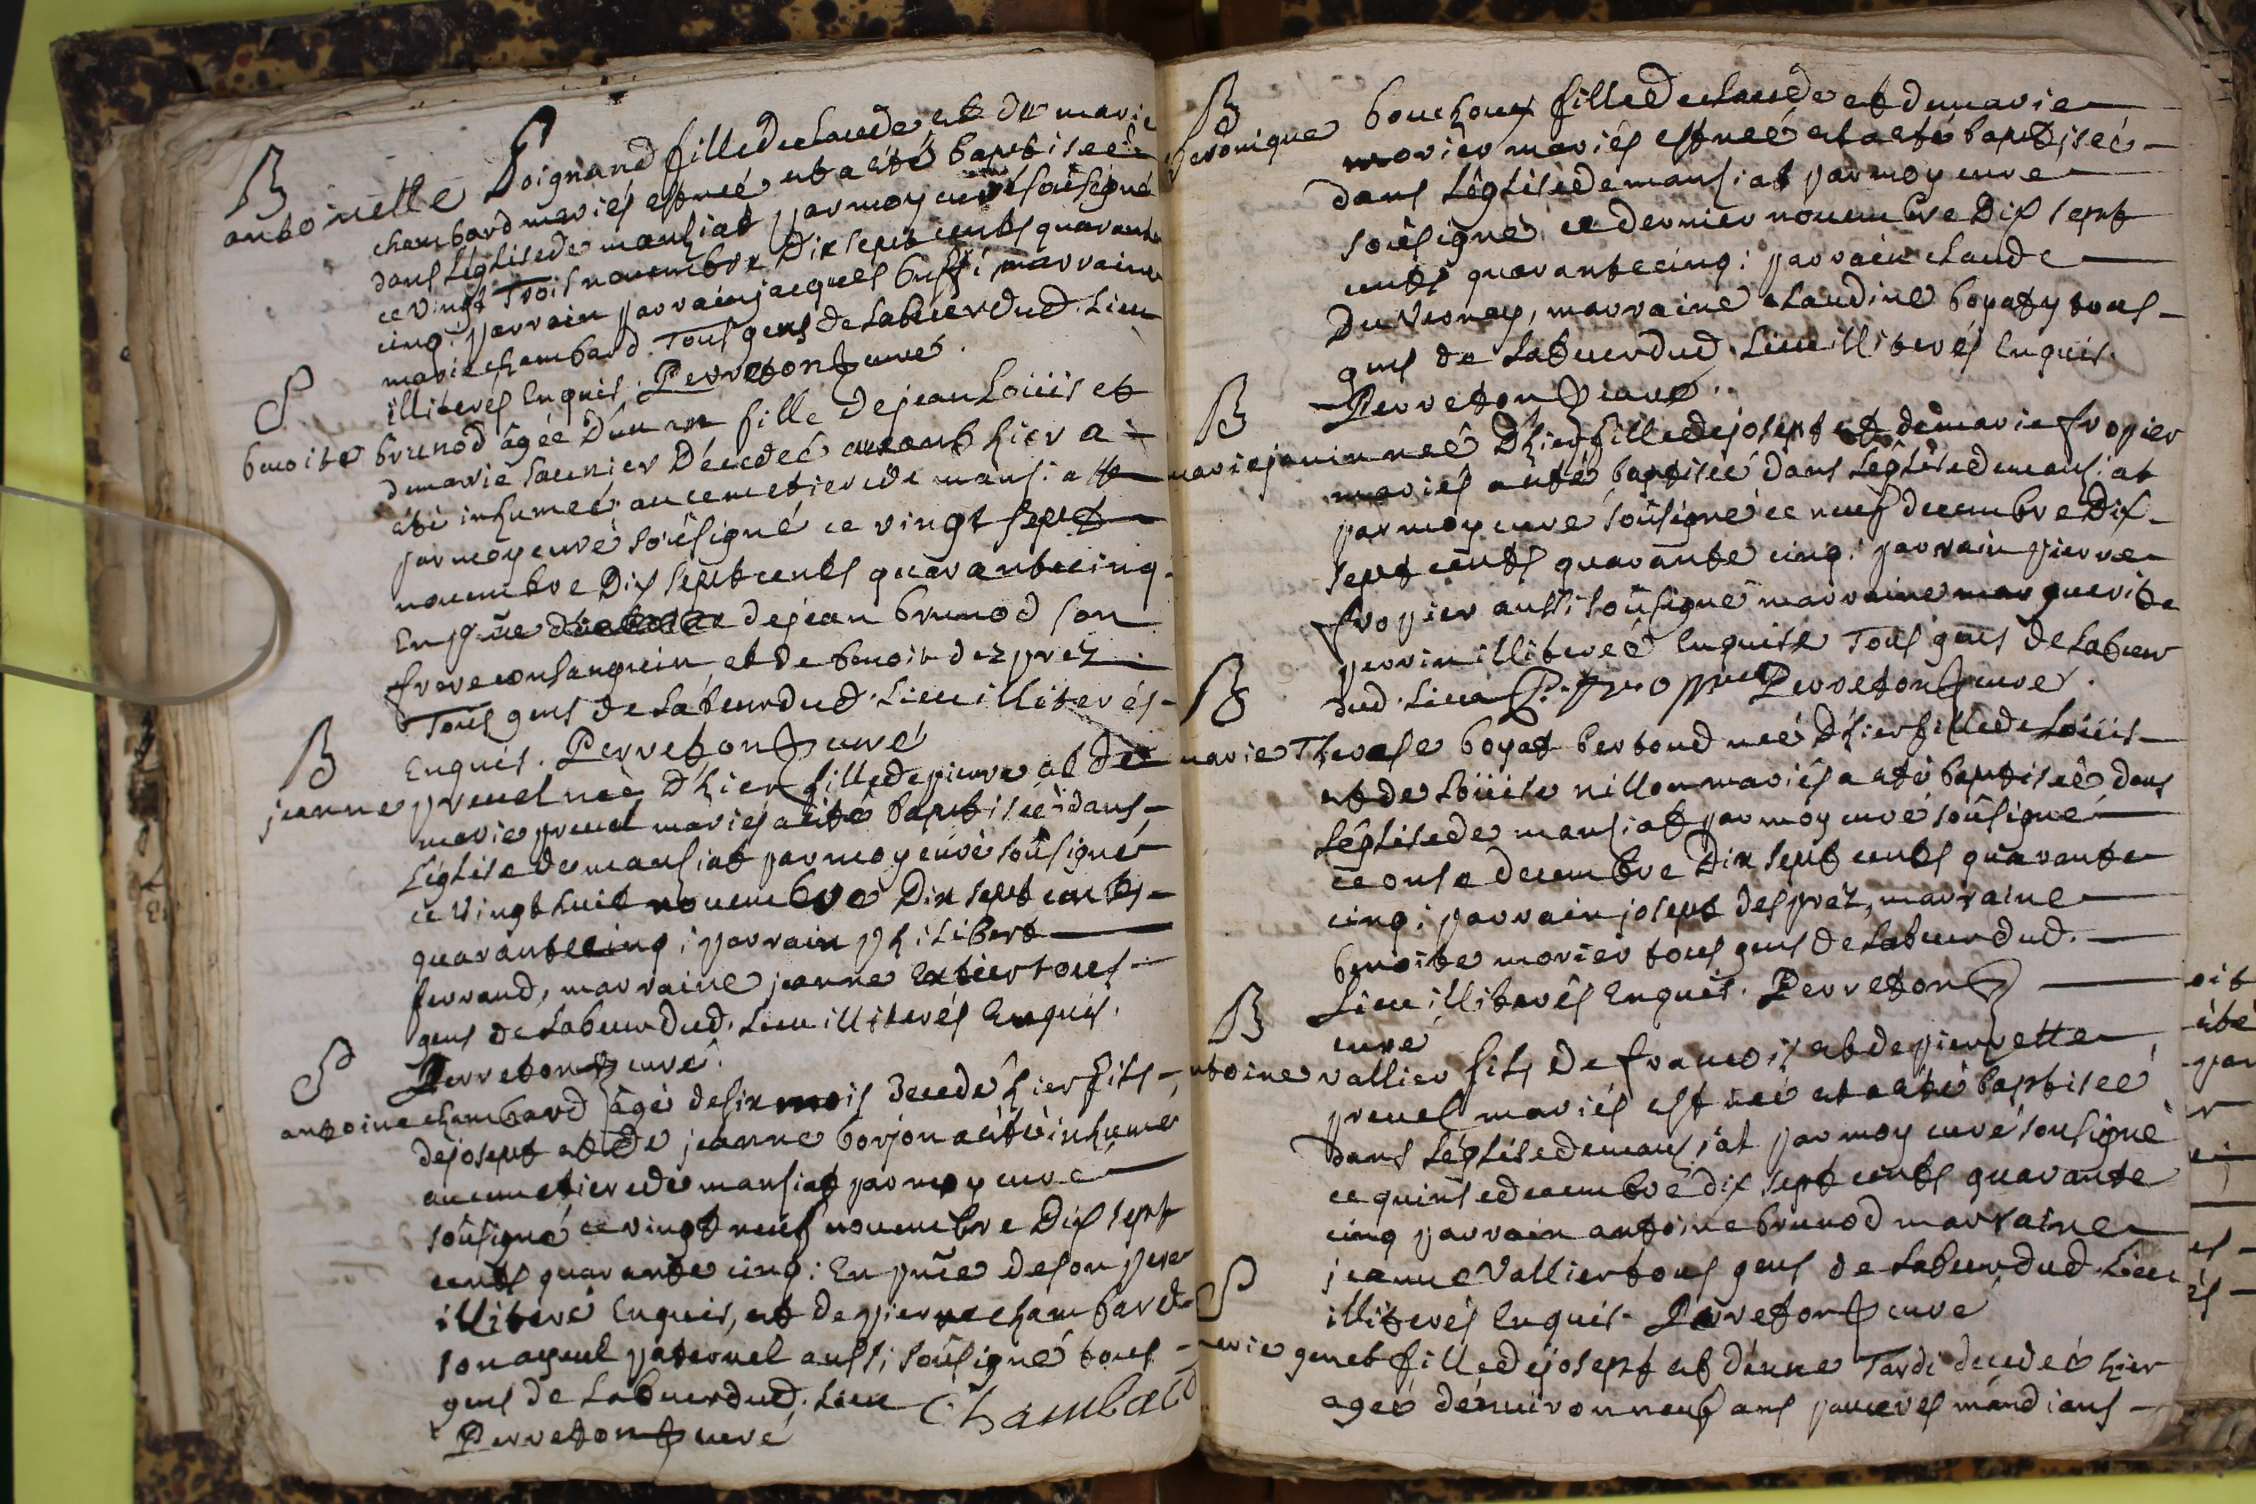 B
antoinette Poignand fille de claude et de marie
chambard mariés est neé et a eté baptiseé
dans L'eglise de mansiat par moy curé soûsigné
ce vingt Trois novembre Dix sept cents quarante
cinq: parrain parrain jacques buffi, marraine
marie chambard. Tous gens de Labeur dud. Lieu
illiterés Enquis. Perreton curé.
S
benoite brunod âgée d'un an fille de jean Loüis et
de marie saunier Décedeé avant hier a
eté inhumeé au cemetiere de mansiatt
par moy curé soûsigné ce vingt sept
novembre Dix sept cents quarante cinq.
En pñce de jean brunod son
frere consanguin et de benoit dezprez
Tous gens de Labeur dud. Lieu illiterés
Enquis. Perreton curé
B
jeanne preuel neé D'hier fille de pierre et de
marie preuel mariés a eté baptiseé dans
L'eglise de mansiat par moy curé soûsigné
ce vingt huit novembre Dix sept cents
quarante cinq; parrain philibert
ferrand, marraine jeanne Extier tous
gens de Labeur dud. Lieu illiterés Enquis.
Perreton curé.
S
antoine chambard âgé de six mois decedé hier fils
de josept et de jeanne borjon a eté inhumé
au cemetiere de mansiat par moy curé
soûsigné ce vingt neuf novembre Dix sept
cents quarante cinq: En pñce de son pere
illiteré Enquis, et de pierre chambard
son ayeul paternel aussi soûsigné tous
gens de Labeur dud. Lieu Chambard
Perreton curé
B
veronique bouchoux fille de claude et de marie
morier mariés est neé et a eté baptiseé
dans L'eglise de mansiat par moy curé
soûsigné ce dernier novembre Dix sept
cents quarante cinq: parrain claude
Du Vernay, marraine claudine boyat tous
gens de Labeur dud. Lieu illiterés Enquis.
Perreton curé.
B
marie janin neé D'hier fille de josept et de marie fropier
mariés a eté baptiseé dans L'eglise de mansiat
par moy curé soûsigné ce neuf decembre Dix
sept cents quarante cinq: parrain pierre
fropier aussi soûsigné marraine marguerite
perrin illitereé Enquise Tous gens de Labeur
dud. Lieu Perreton curé.
B
marie Therese boyat bertoud neé D'hier fille de Loüis
et de Loüise nillon mariés a eté baptiseé dans
L'eglise de mansiat par moy curé soûsigné
ce onse decembre Dix sept cents quarante
cinq: parrain josept desprez, marraine
benoite morier tous gens de Labeur dud.
Lieu illiterés Enquis. Perreton
curé
B
antoine vallier fils de francois et de pierrette
preuel mariés est neé et a eté baptiseé
dans L'eglise de mansiat par moy curé sousigné
ce quinse decembre dix sept cents quarante
cinq parrain antoine brunod marraine
jeanne Vallier tous gens de Labeur dud. Lieu
illiterés Enquis. Perreton curé
S
marie genet fille de josept et d'anne Tardi decedeé hier
ageé d'environ neuf ans pauvres mandians